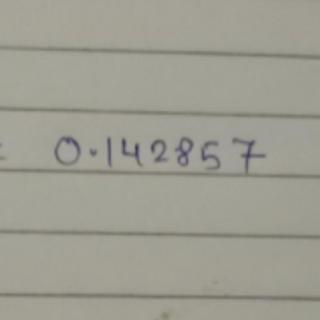 = 0.142857